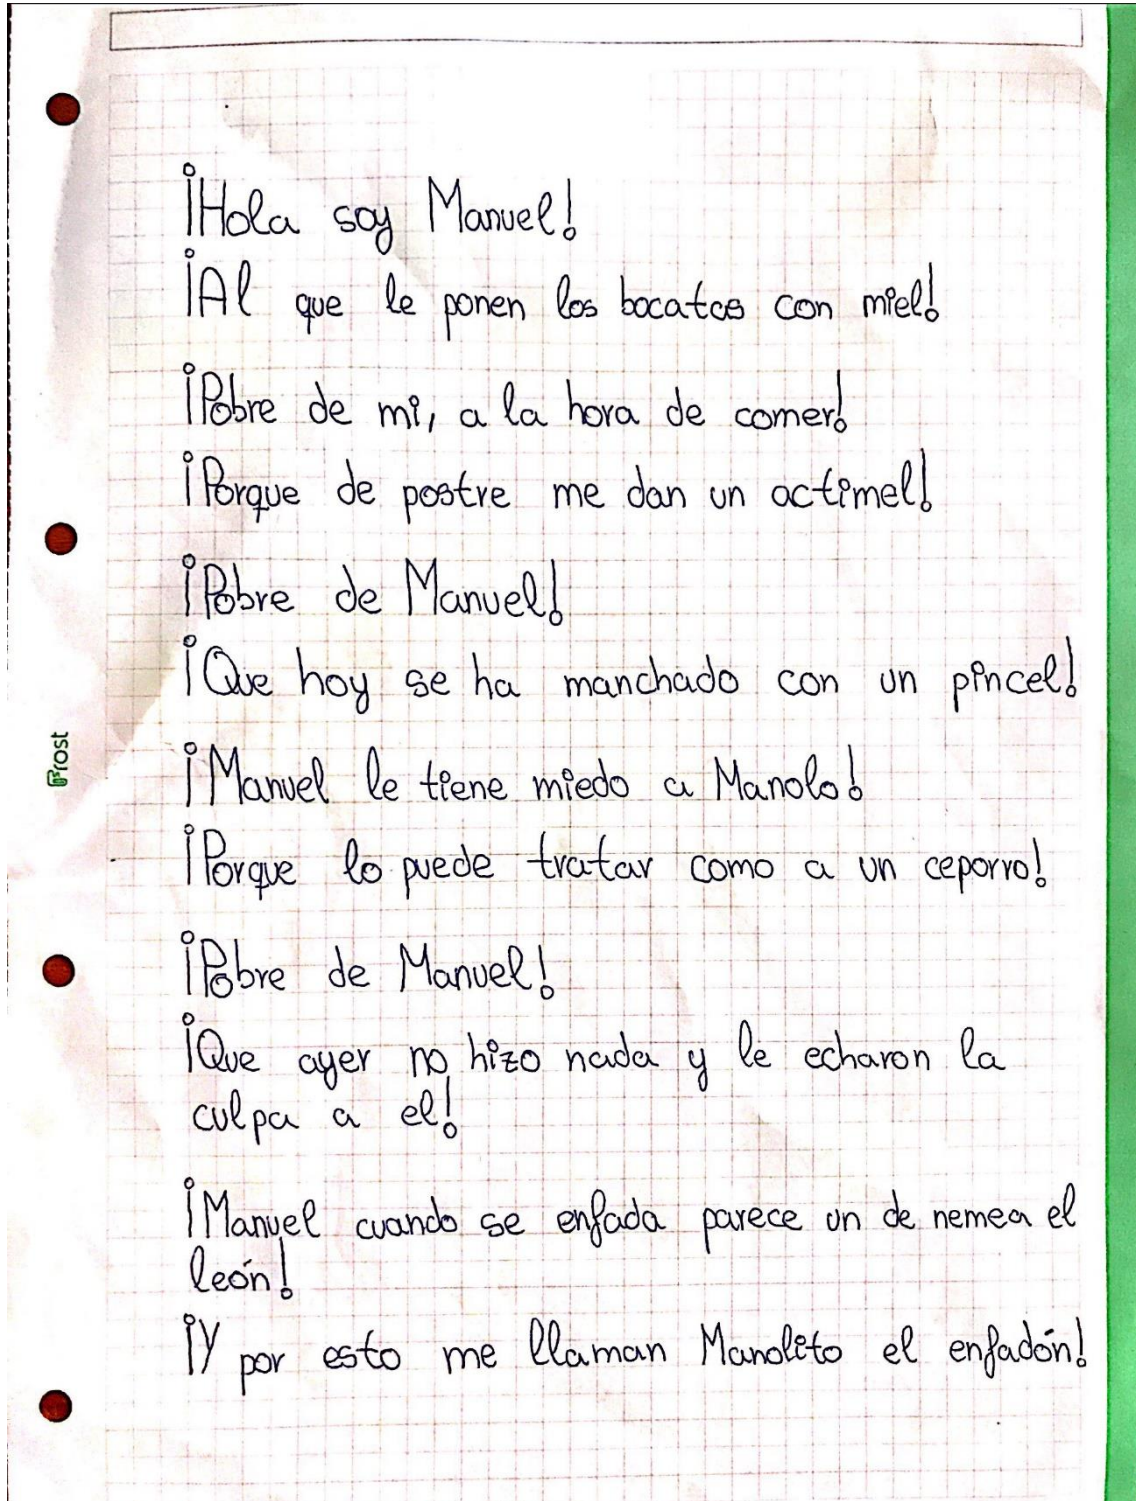 ¡Hola soy Manuel!
¡Al que le ponen los bocatas con miel!
¡Pobre de mi, a la hora de comer!
¡Porque de postre me dan un actimel!
¡Pobre de Manuel!
¡Que hoy se ha manchado con un pincel!
Frost
¡Manuel le tiene miedo a Manolo!
¡Porque lo puede tratar como a un ceporro!
¡Pobre de Manuel!
¡Que ayer no hizo nada y le echaron la
culpa a el!
¡Manuel cuando se enfada parece un de nemea el
león!
¡Y por esto me llaman Manolito el enfadón!